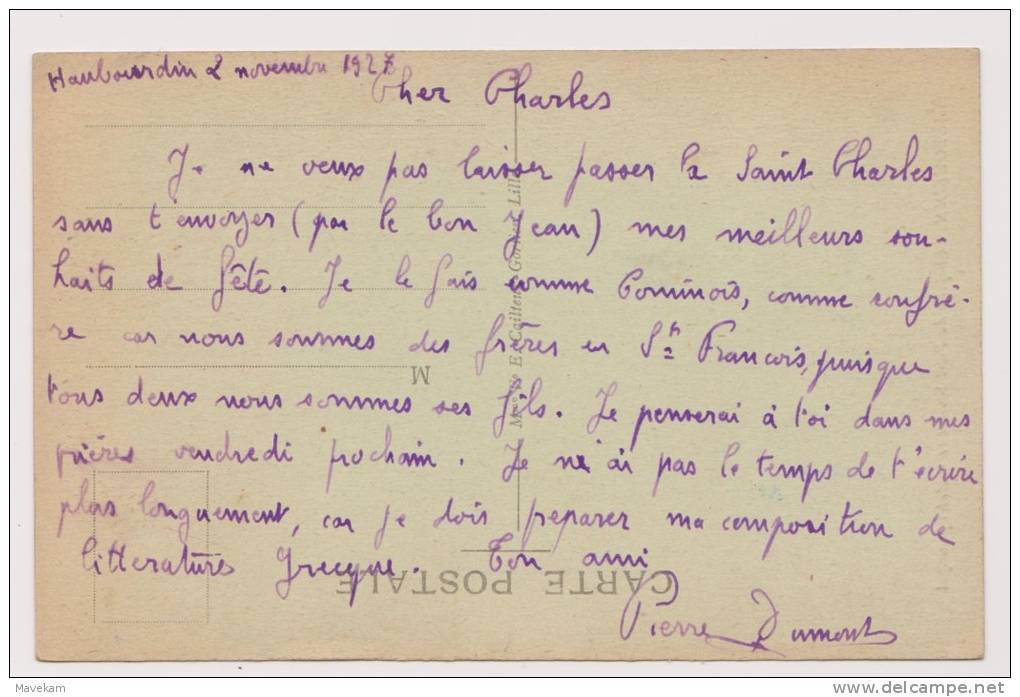 Haubourdin 2 novembre 1927
Cher Charles
Je ne veux pas laisser passer la Saint Charles
sans t'envoyer (par le bon Jean) mes meilleurs sou-
haits de fête. Je le fais comme Cominois, comme confrè-
re car nous sommes des frères en St François, puisque
tous deux nous sommes ses fils. Je penserai à toi dans mes
prières vendredi prochain. Je n'ai pas le temps de t'écrire
plus longuement, car je dois preparer ma composition de
litterature grecque. Ton ami
Pierre Dumont
M
CARTE POSTALE
Lille
Mavekam
delcampe.net